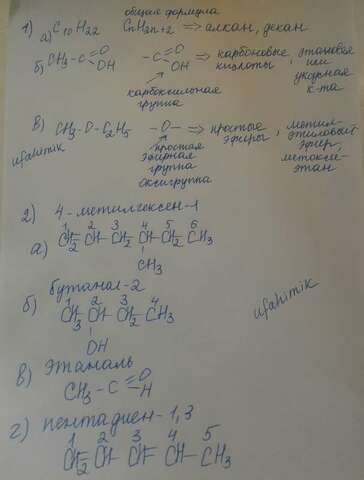 общая формула
1) а) C10H22 CnH2n+2 ⇒ алкан, декан
б) CH3-C=O OH -C=O OH ⇒ карбоновые кислоты, этановая или уксусная к-та
карбоксильная группа
в) CH3-O-C2H5 -O- ⇒ простые эфиры, метил-этиловый эфир, метоксиэтан
простая эфирная группа оксигруппа
ufahitik
2) 4-метилгексен-1
1 2 3 4 5 6
а) CH2=CH-CH2-CH-CH2-CH3
CH3
б) бутанол-2
1 2 3 4
CH3-CH-CH2-CH3
OH
ufahitik
в) этаналь
CH3-C=O H
г) пентадиен-1,3
1 2 3 4 5
CH2 CH CH CH CH3